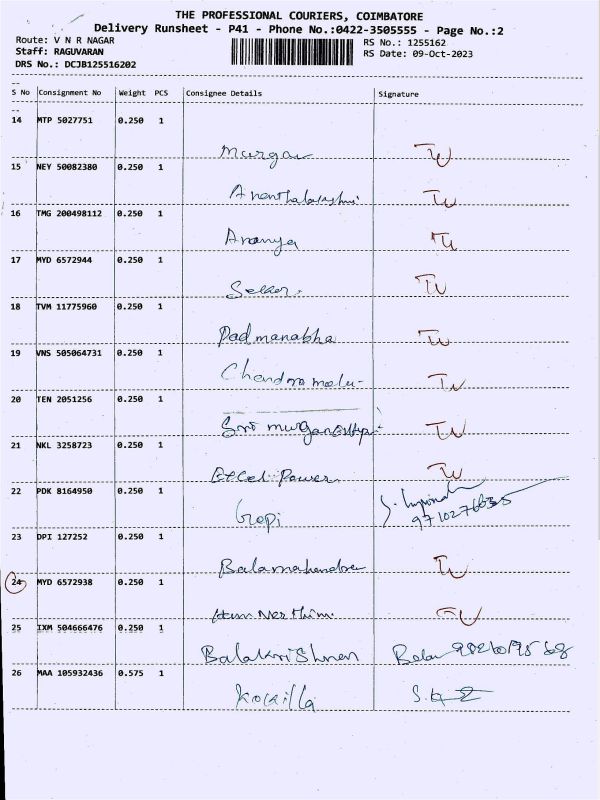 THE PROFESSIONAL COURIERS, COIMBATORE
Delivery Runsheet - P41 - Phone No.:0422-3505555 - Page No.:2
Route: V N R NAGAR
RS No.: 1255162
Staff: RAGUVARAN
RS Date: 09-Oct-2023
DRS No.: DCJB125516202
S No Consignment No Weight PCS Consignee Details Signature
14 MTP 5027751 0.250 1
Murgan
15 NEY 50082380 0.250 1
Ananthalakshmi
16 TMG 200498112 0.250 1
Ananya
17 MYD 6572944 0.250 1
Sekar
18 TVM 11775960 0.250 1
Padmanabha
19 VNS 505064731 0.250 1
Chandramalu
20 TEN 2051256 0.250 1
Sri
21 NKL 3258723 0.250 1
Excel Power
22 PDK 8164950 0.250 1
Gopi
23 DPI 127252 0.250 1
Balamahendra
24 MYD 6572938 0.250 1
25 IXM 504666476 0.250 1
Balakrishnan Bala
26 MAA 105932436 0.575 1
Kokilla